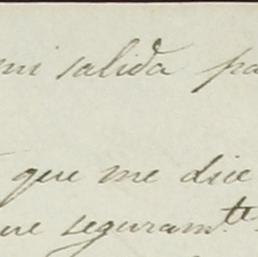 mi salida pa
que me dice
ue seguramte